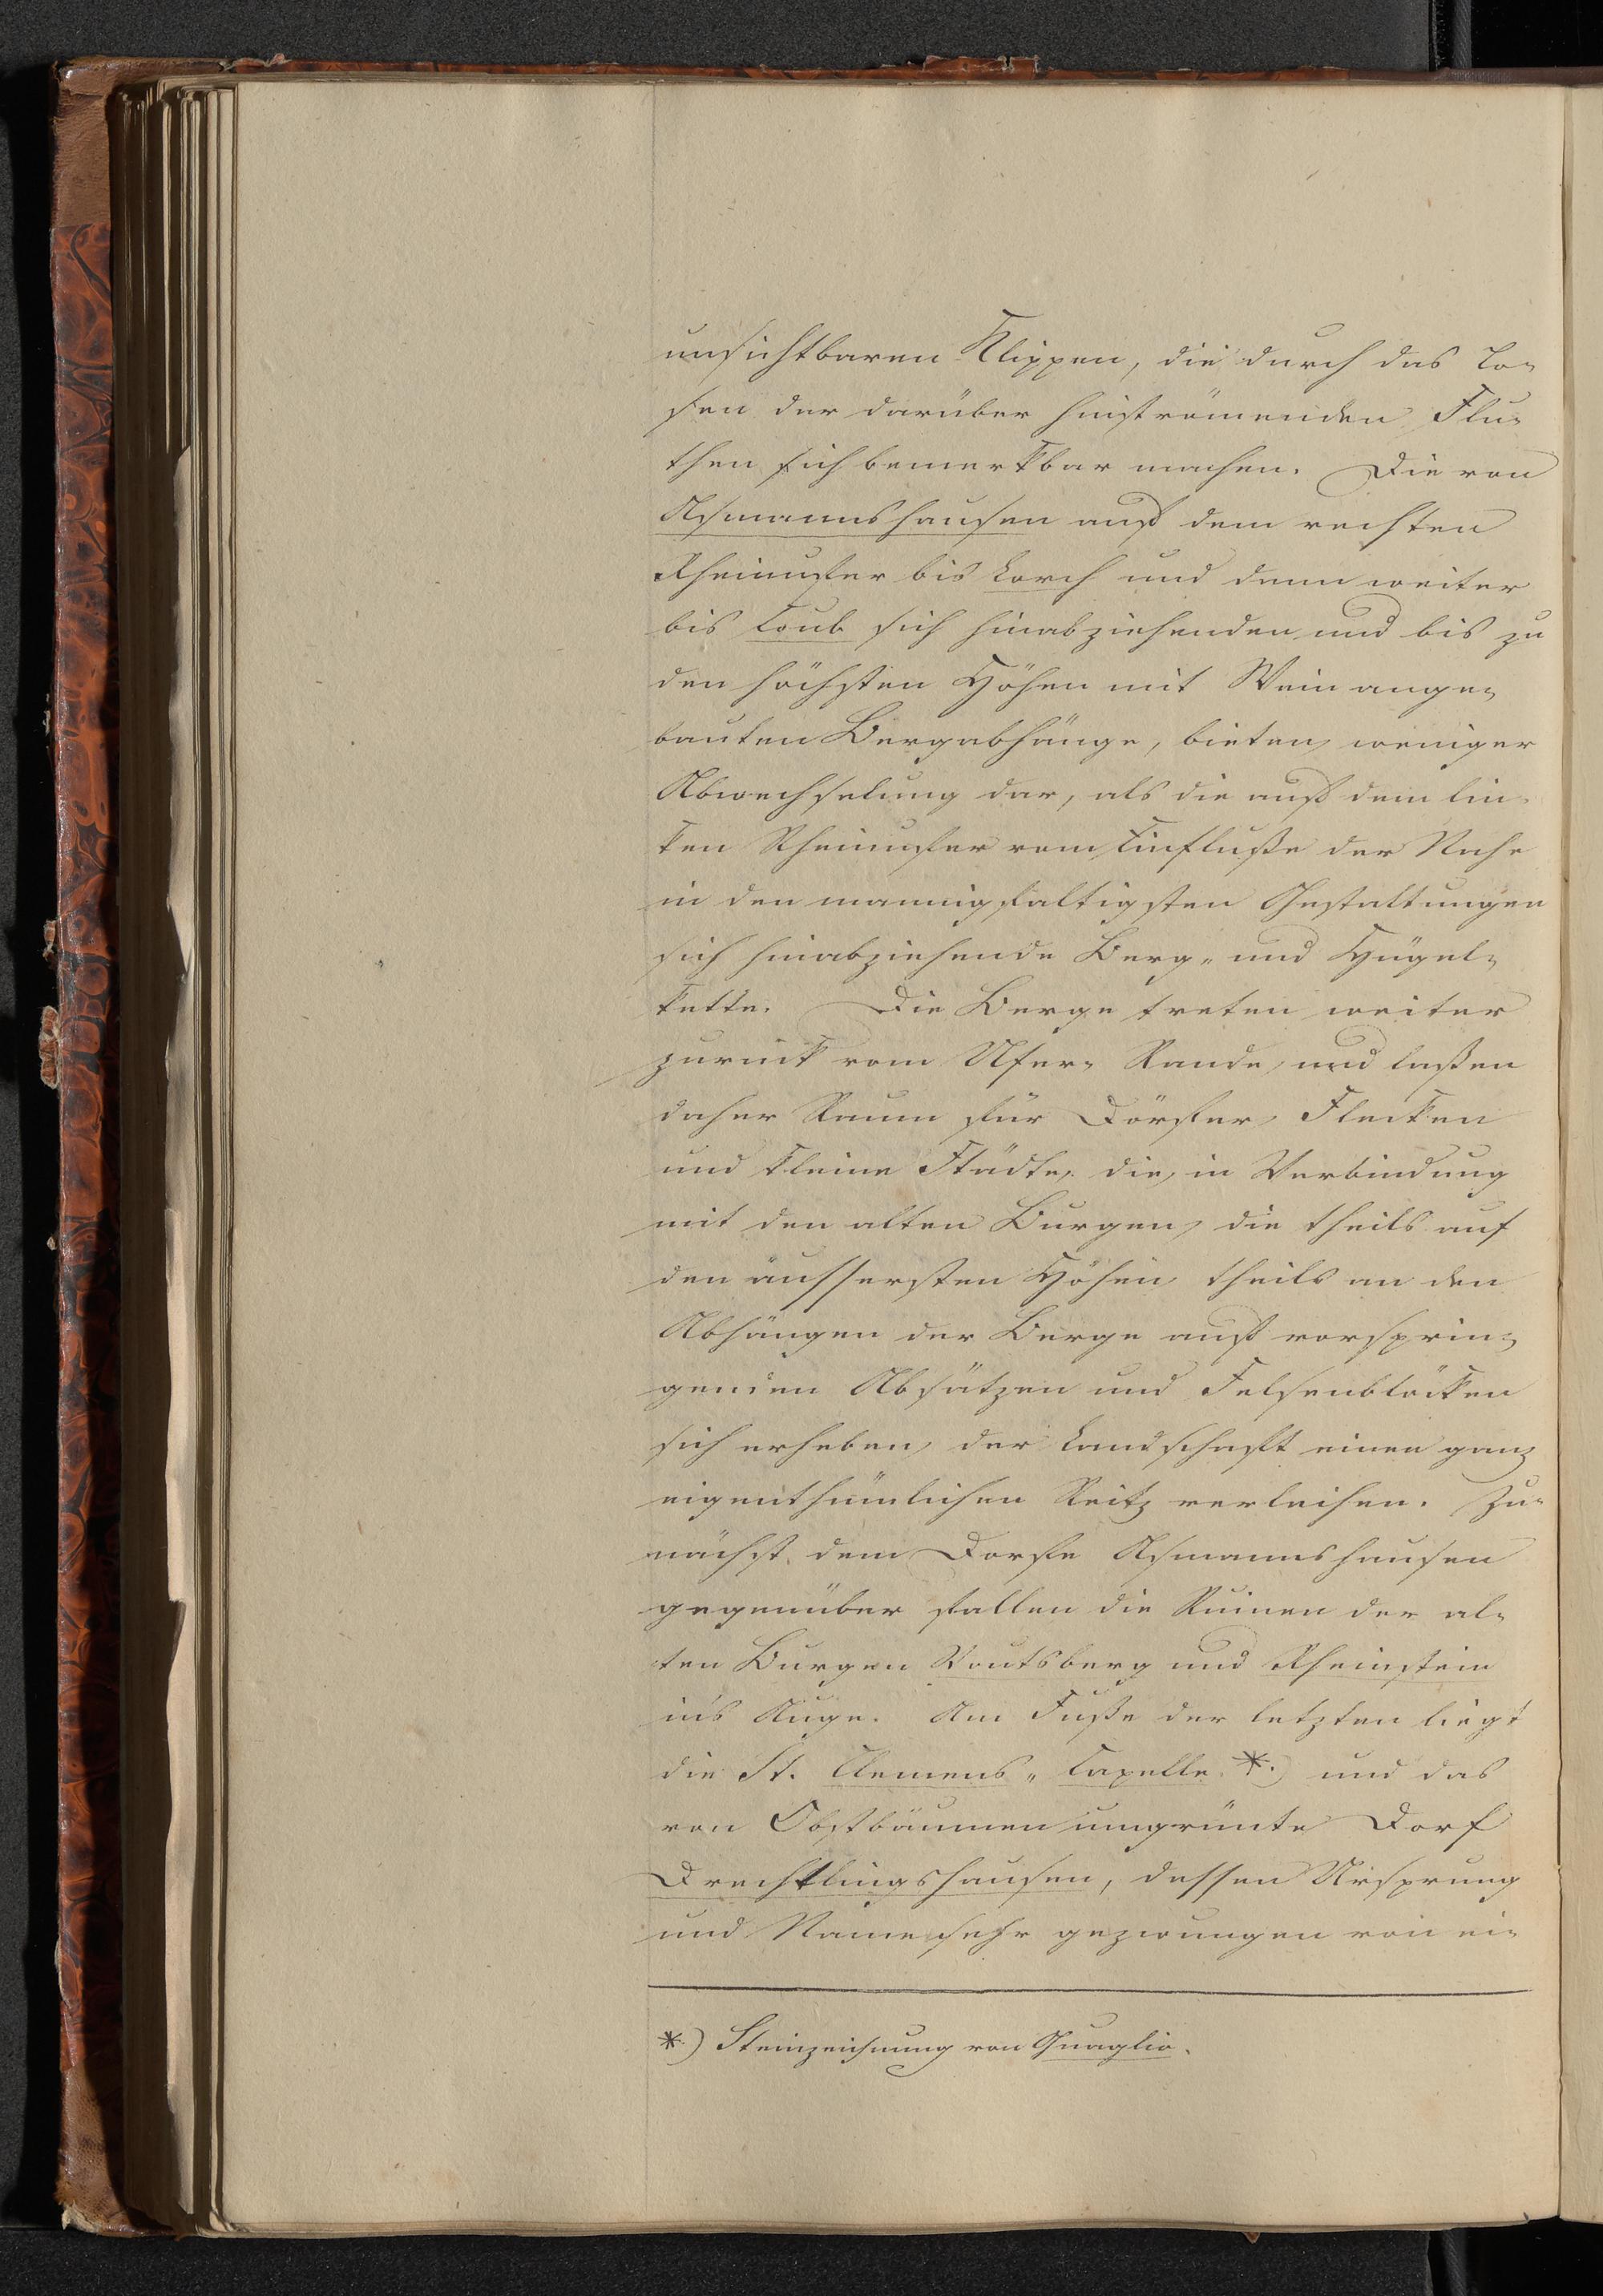 unsichtbaren Klippen, die durch das To-
sen der darüber hinströmenden Flu-
then sich bemerkbar machen. Die von
Asmannshausen auf dem rechten
Rheinufer bis Lorch und denn weiter
bis Caub sich hinabziehenden und bis zu
den höchsten Höhen mit Wein ange-
bauten Bergabhänge, bieten weniger
Abwechselung dar, als die auf dem lin-
ken Rheinufer vom Einfluße der Nahe
in den mannigfaltigsten Gestaltungen
sich hinabziehende Berg- und Hügel-
kette. Die Berge treten weiter
zurück vom Ufer-Rande, und laßen
daher Raum für Dörfer, Flecken
und kleine Städte, die, in Verbindung
mit den alten Burgen, die theils auf
den äussersten Höhen, theils an den
Abhängen der Berge auf vorsprin-
genden Absätzen und Felsenblöcken
sich erheben, der Landschaft einen ganz
eigenthümlichen Reitz verleihen. Zu-
nächst, dem Dorfe Asmannshausen
gegenüber fallen die Ruinen der al-
ten Burgen Voutsberg und Rheinstein
in's Auge. Am Fuße der letzten liegt
die St. Clemens-Capelle *.) und das
von Obstbäumen umgrünte Dorf
Drechtlingshausen, dessen Ursprung
und Name sehr gezwungen von ei-
*.) Steinzeichnung von Quaglio.